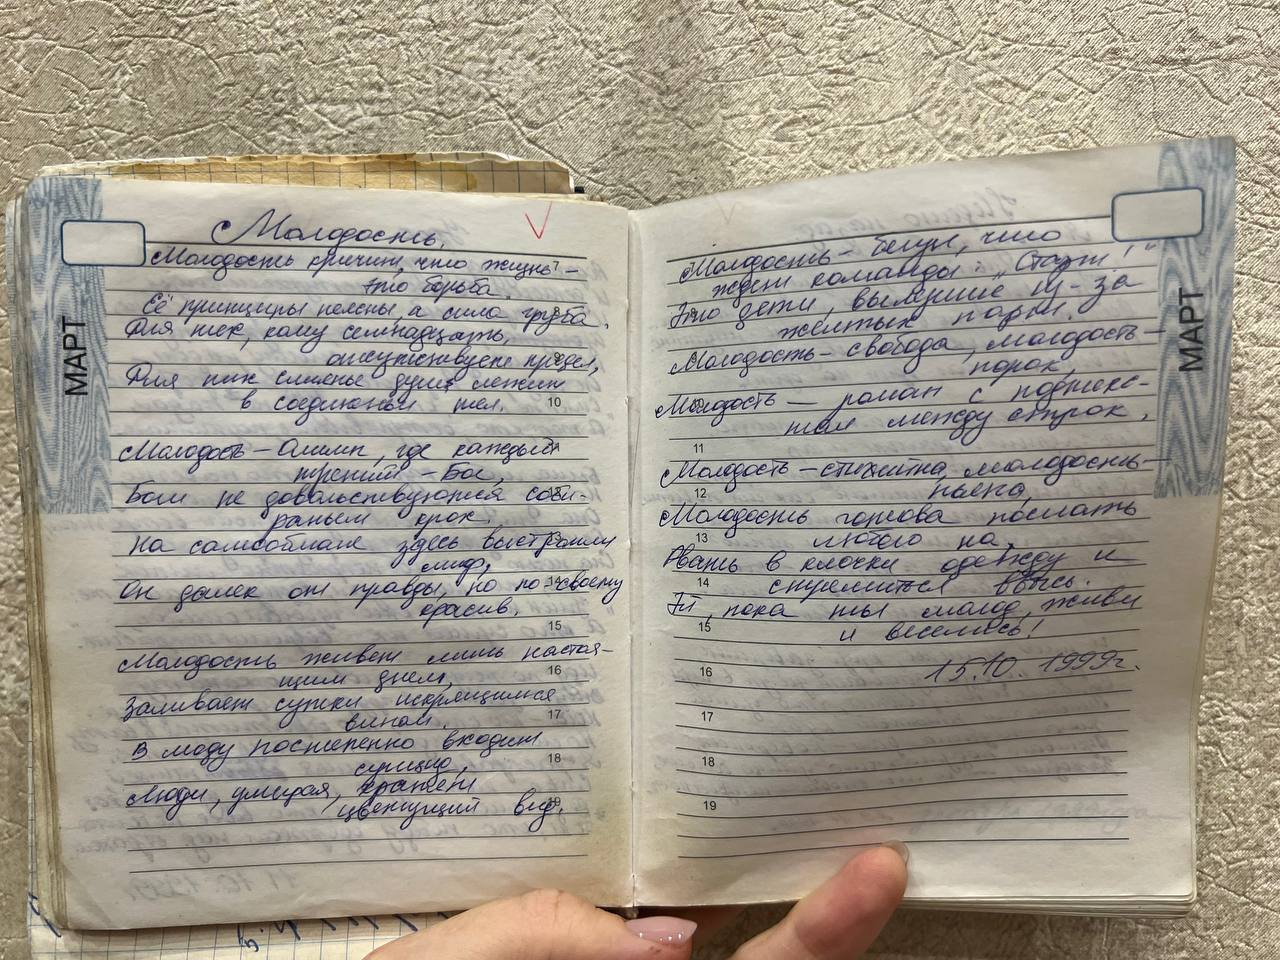 МАРТ
Молодость.
Молодость кричит, что жизнь –
это борьба.
Её принципы полны, а сила груба.
Для тех, кому семнадцать,
отсутствует предел,
Для них слиянье душ лежит
в соединеньи тел.
Молодость – Олимп, где каждый
третий – Бог,
Боги не довольствуются соби-
раньем крох.
На самообмане здесь выстроили
миф,
Он далёк от правды, но по-своему
красив.
Молодость живёт лишь настоя-
щим днём,
Заливает сутки искрящимся
вином.
В моду постепенно входит
суицид,
Люди, умирая, хранят
цветущий вид.
7
8
9
10
11
12
13
14
15
16
17
18
19
МАРТ
Молодость – бегун, что
ждёт команды: „Старт!"
Это дети, вылезшие из-за
жёлтых парт.
Молодость – свобода, молодость –
порок,
Молодость – роман с подтекс-
том между строк.
Молодость – стихийна, молодость –
пьяна,
Молодость готова послать
любого на,
Рвать в клочки одежду и
стремиться ввысь.
Эй, пока ты молод, живи
и веселись!
15.10.1999г.
11
12
13
14
15
16
17
18
19